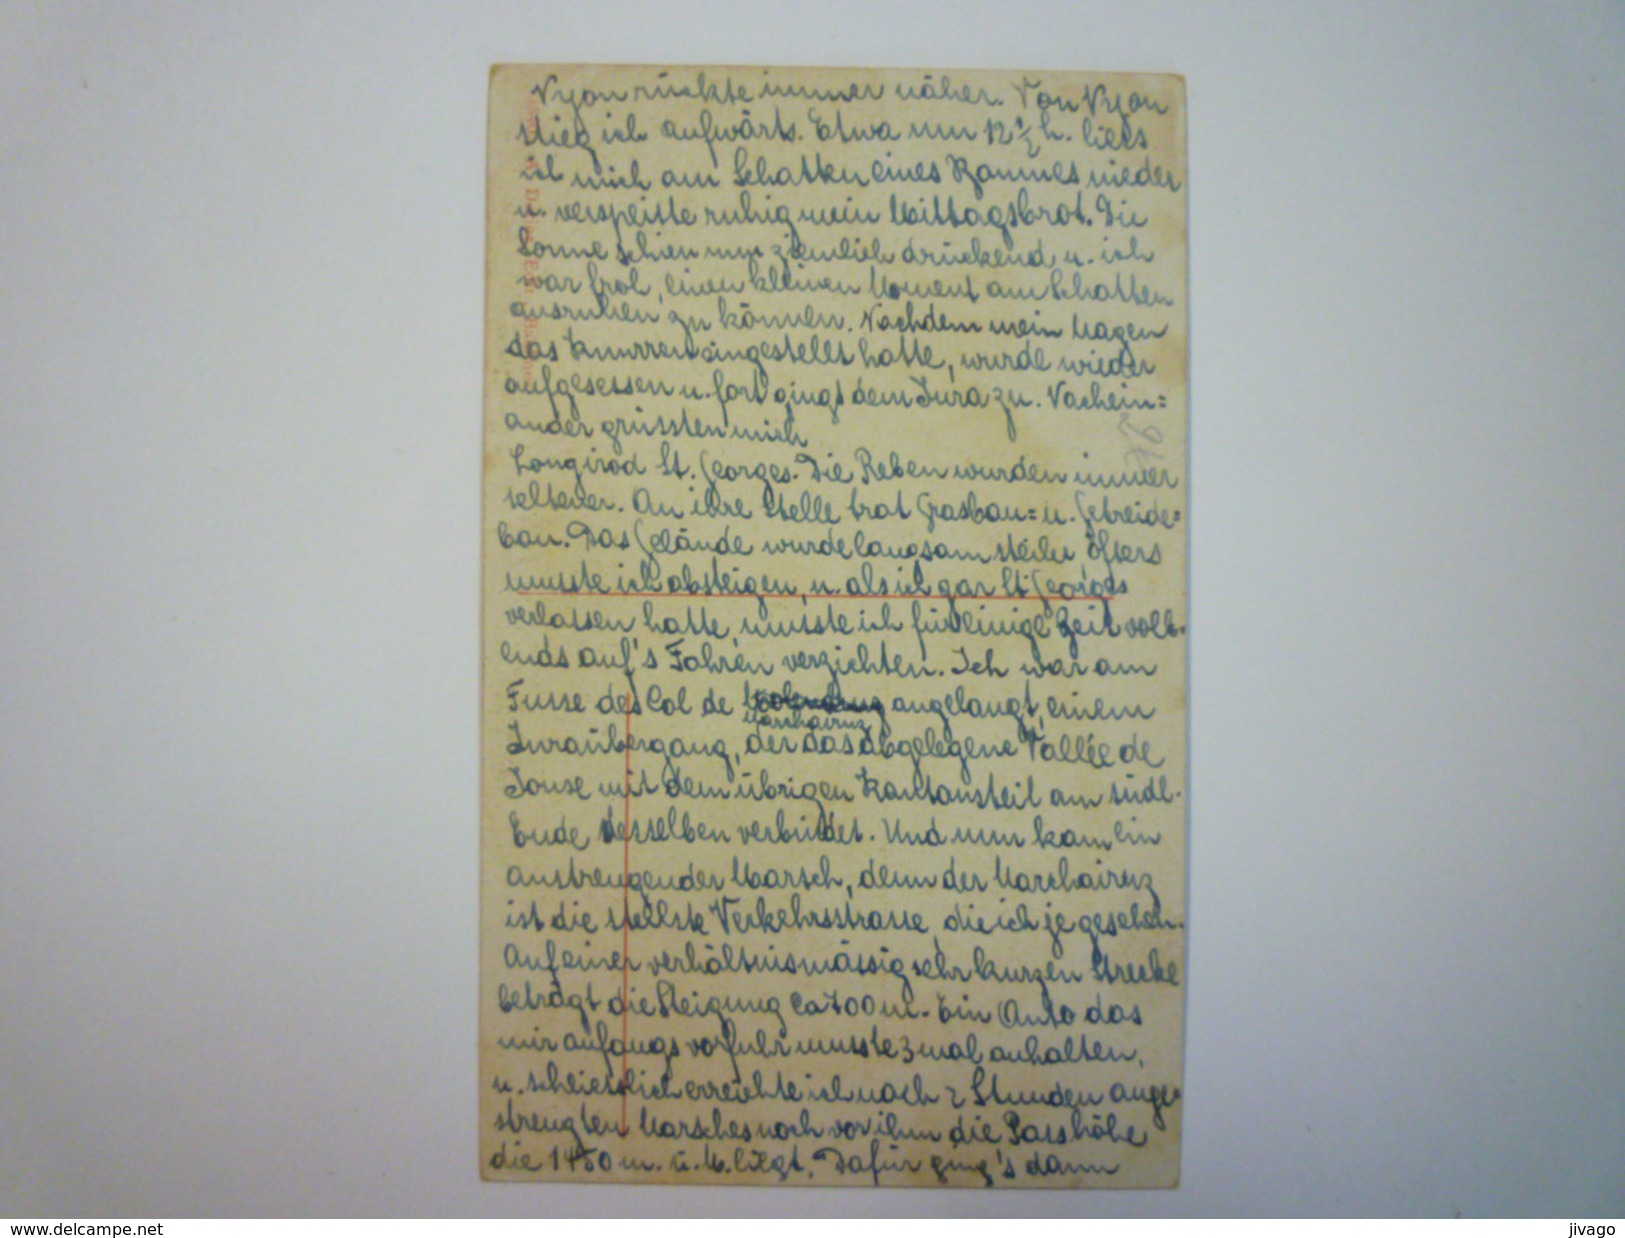 Nyon rückte immer näher. Von Nyon
stieg ich aufwärts. Etwa um 12 ½ h. liess
ich mich am Schatten eines Baumes nieder
u. verspeiste ruhig mein Mittagsbrot. Die
Sonne schien nun ziemlich drückend u. ich
war froh, einen kleinen Moment am Schatten
ausruhen zu können. Nachdem mein Magen
das Knurren eingestellt hatte, wurde wieder
aufgesessen u. fort gings dem Jura zu. Nachein=
ander grüssten mich
Longirod St. Georges. Die Reben wurden immer
seltener. An ihre Stelle trat Grasbau= u. Getreide=
bau. Das Gelände wurde langsam steiler, öfters
musste ich absteigen, u. als ich gar St. Georges
verlassen hatte, musste ich für einige Zeit voll-
ends auf's Fahren verzichten. Ich war am
Fusse des Col de angelangt, einem
Marchairuz
Juraübergang, der das abgelegene Vallée de
Joux mit dem übrigen Kantonsteil am südl.
Ende desselben verbindet. Und nun kam ein
anstrengender Marsch, denn der Marchairuz
ist die steilste Verkehrsstrasse, die ich je gesehen.
Auf einer verhältnismässig sehr kurzen Strecke
beträgt die Steigung ca 700 m. Ein Auto das
mir anfangs vorfuhr musste 3 mal anhalten,
u. schliesslich erreichte ich nach 2 Stunden ange-
strengten Marsches noch vor ihm die Passhöhe
die 1450 m. ü. M. liegt. Dafür ging's dann
www.delcampe.net
jivago